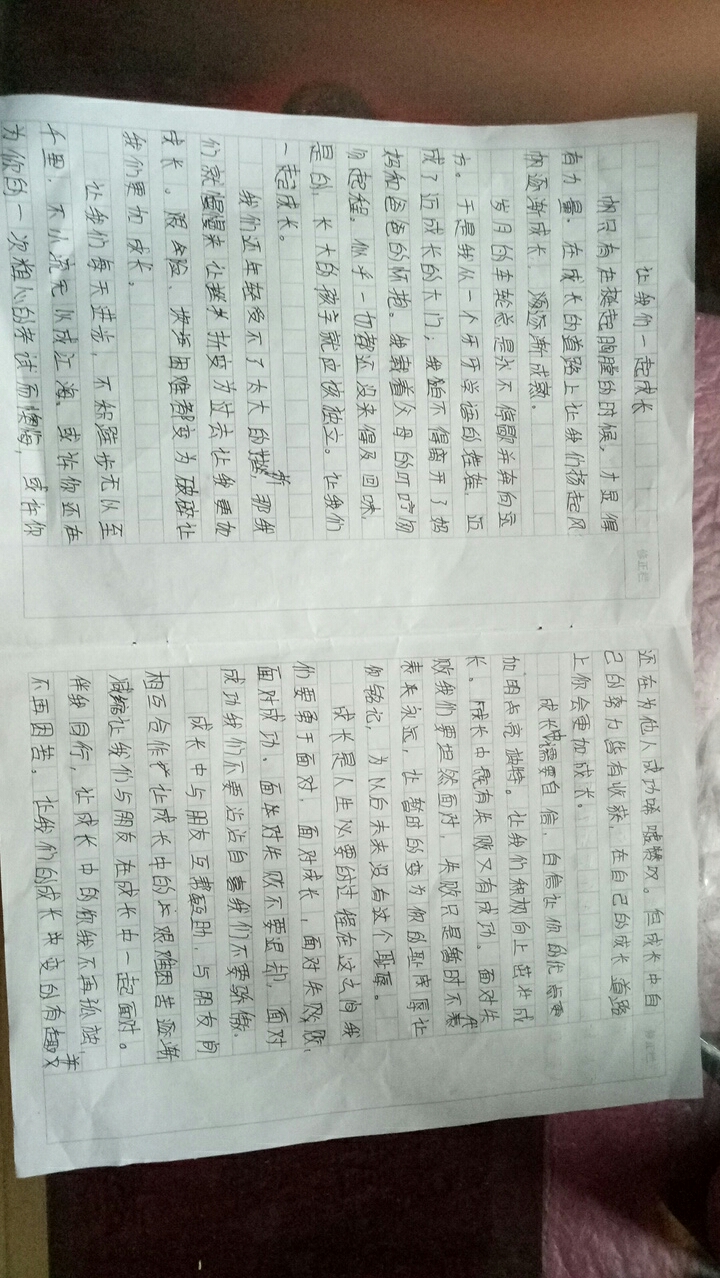 让我们一起成长
帆只有在挺起胸膛的时候，才显得
有力量。在成长的道路上让我们扬起风
帆逐渐成长，逐渐成熟。
岁月的车轮总是永不停歇并奔向远
方。于是我从一个牙牙学语的娃娃，迈
成了迈成长的大门；我始不得离开了妈
妈和爸爸的怀抱。我载着父母的叮咛匆
匆起程。似乎一切都还没来得及回味，
是的，长大的孩子就应该独立。让我们
一起成长。
我们还年轻受不了太大的挫折，那我
们就慢慢来让挫折变为过去让我更加
成长。艰险、坎坷困难都变为破碎让
我们更加成长。
让我们每天进步，不积跬步无以至
千里，不小流无以成江海。或许你还在
为你的一次粗心的考试而懊悔，或许你
还在为他人成功唉叹。但成长中自
己的努力皆有收获，在自己的成长道路
上你会更加成长。
成长中需要自信，自信让你的优点更
加闪亮独特。让我们积极向上茁壮成
长。成长中既有失败又有成功。面对失
败我们要坦然面对，失败只是暂时不代
表永远，让暂时的变为你的耻辱让
你铭记，为以后未来没有这个耻辱。
成长是人生必要的过程在这之中我
们要勇于面对，面对成长，面对失败，
面对成功。面对失败不要退却，面对
成功我们不要沾沾自喜我们不要骄傲。
成长中与朋友互帮互助，与朋友的
相互合作让成长中的艰难困苦逐渐
减缩让我们与朋友在成长中一起面对。
伴我同行，让成长中的你我不再孤独，并
不再困苦。让我们的成长变的有趣又